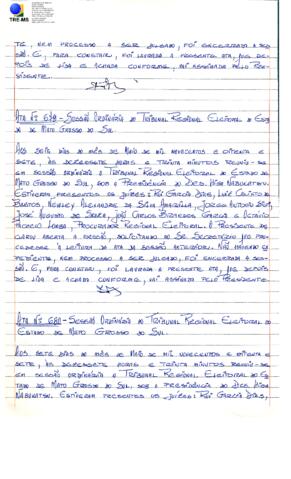 TRE-MS
TE, NEM PROCESSO A SER JULGADO, FOI ENCERRADA A SES-
SÃO. E, PARA CONSTAR, FOI LAVRADA A PRESENTE ATA, QUE DE-
POIS DE LIDA E ACHADA CONFORME, VAI ASSINADA PELO PRE-
SIDENTE.
ATA Nº 679 - SESSÃO ORDINÁRIA DO TRIBUNAL REGIONAL ELEITORAL DO ESTA-
DO DE MATO GROSSO DO SUL.
AOS SEIS DIAS DO MÊS DE MAIO DE MIL NOVECENTOS E OITENTA E
SETE, ÀS DEZESSETE HORAS E TRINTA MINUTOS REUNIU-SE
EM SESSÃO ORDINÁRIA O TRIBUNAL REGIONAL ELEITORAL DO ESTADO DE
MATO GROSSO DO SUL, SOB A PRESIDÊNCIA DO DES. NABUKATSU.
ESTIVERAM PRESENTES OS JUÍZES: RUI GARCIA DIAS, LUIZ
BASTOS, NEWLEY ALEXANDRE DA SILVA AMARILLA, JORGE ANTONIO
JOSÉ AUGUSTO DE SOUZA, JOSÉ CARLOS E
LOBO, PROCURADOR REGIONAL ELEITORAL. O PRESIDENTE DE-
CLAROU ABERTA A SESSÃO, SOLICITANDO AO SR. SECRETÁRIO QUE PRO-
CEDESSE À LEITURA DA ATA DA SESSÃO ANTERIOR. NÃO HAVENDO EX-
PEDIENTE, NEM PROCESSO A SER JULGADO, FOI ENCERRADA A SES-
SÃO. E, PARA CONSTAR, FOI LAVRADA A PRESENTE ATA, QUE DEPOIS
DE LIDA E ACHADA CONFORME, VAI ASSINADA PELO PRESIDENTE.
ATA Nº 680 - SESSÃO ORDINÁRIA DO TRIBUNAL REGIONAL ELEITORAL DO
ESTADO DE MATO GROSSO DO SUL.
AOS SETE DIAS DO MÊS DE MAIO DE MIL NOVECENTOS E OITENTA E
SETE, ÀS DEZESSETE HORAS E TRINTA MINUTOS REUNIU-SE
EM SESSÃO ORDINÁRIA O TRIBUNAL REGIONAL ELEITORAL DO ES-
TADO DE MATO GROSSO DO SUL, SOB A PRESIDÊNCIA DO DES.
NABUKATSU. ESTIVERAM PRESENTES OS JUÍZES: RUI GARCIA DIAS,